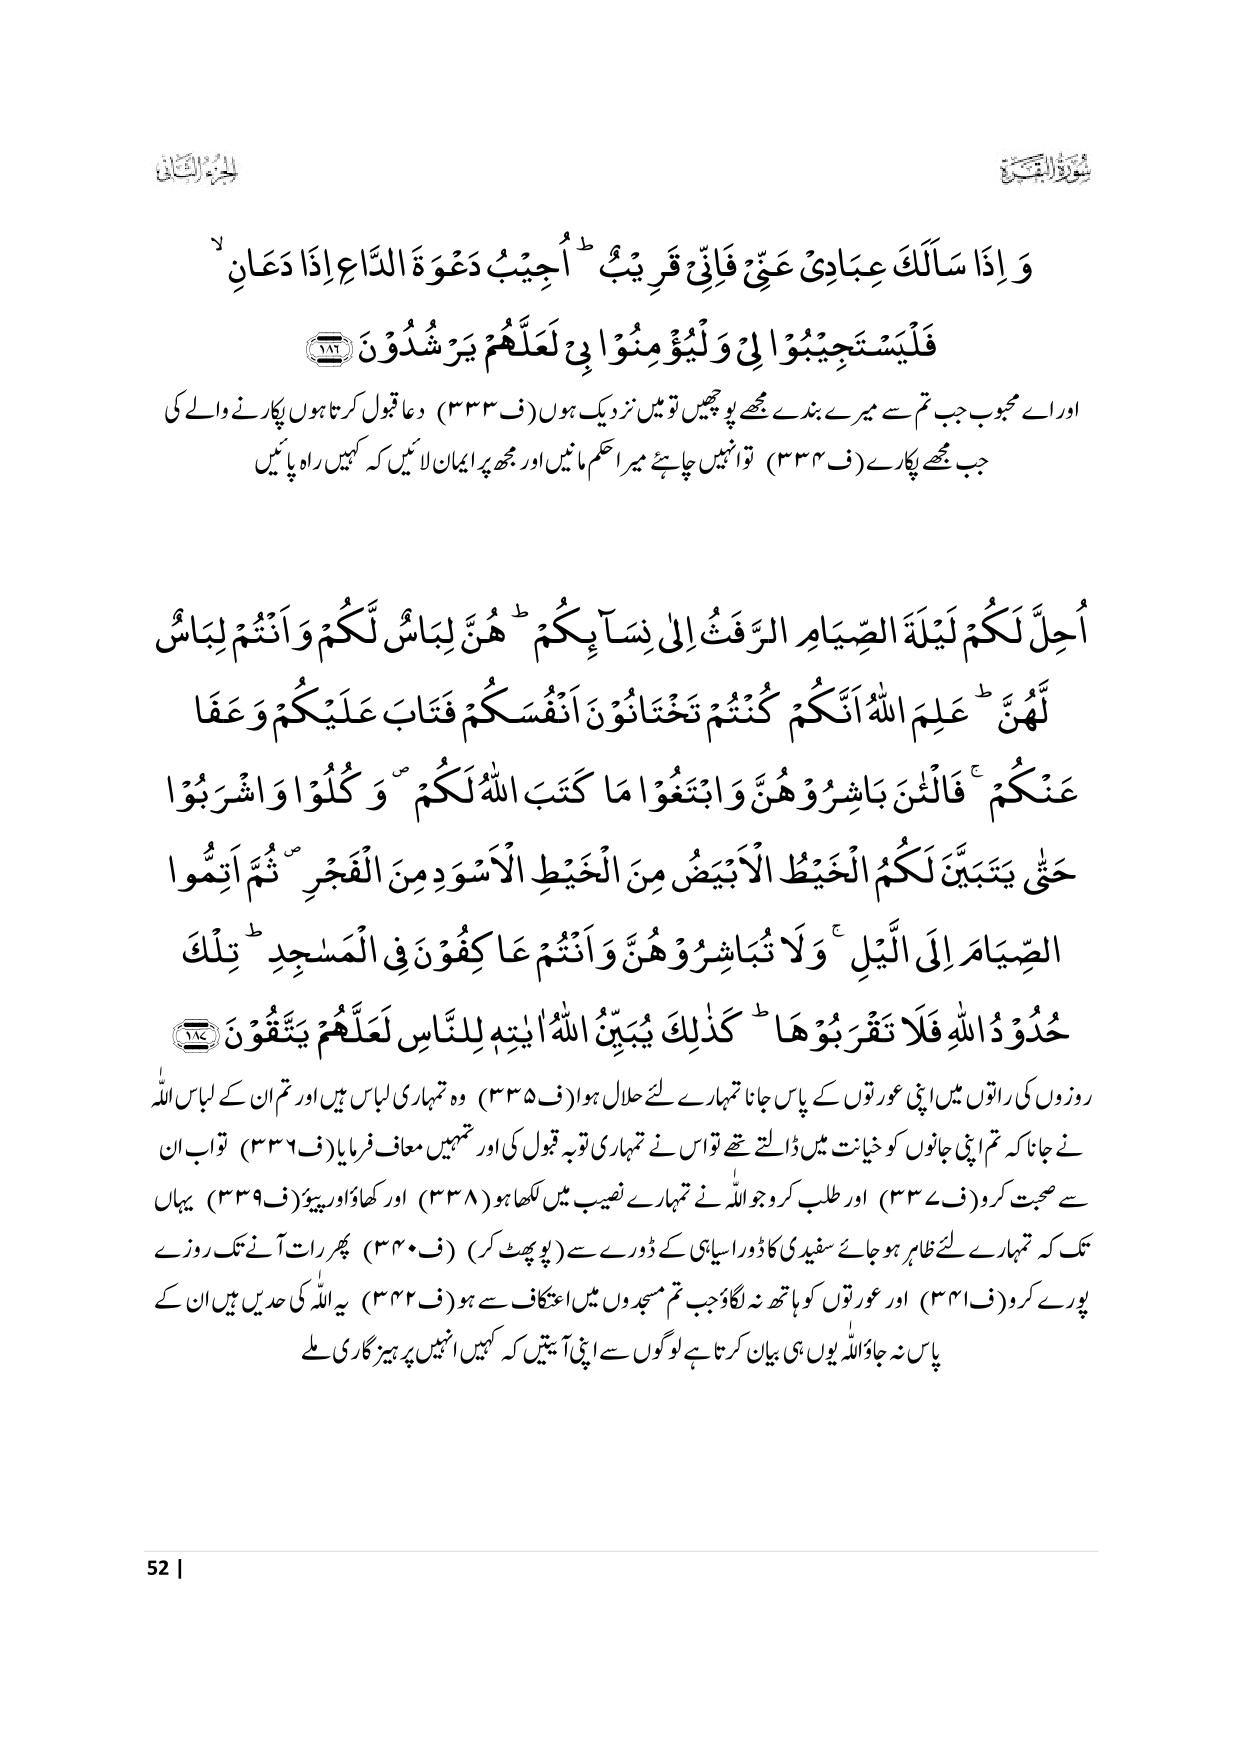 سُوْرَةُ الْبَقَرَة
الجزء الثانی
وَ اِذَا سَاَلَكَ عِبَادِیْ عَنِّیْ فَاِنِّیْ قَرِیْبٌؕ اُجِیْبُ دَعْوَةَ الدَّاعِ اِذَا دَعَانِۙ
فَلْیَسْتَجِیْبُوْا لِیْ وَ لْیُؤْمِنُوْا بِیْ لَعَلَّهُمْ یَرْشُدُوْنَ ﴿۱۸۶﴾
اور اے محبوب جب تم سے میرے بندے مجھے پوچھیں تو میں نزدیک ہوں (ف۳۳۳) دعا قبول کرتا ہوں پکارنے والے کی
جب مجھے پکارے (ف۳۳۴) تو انہیں چاہئے میرا حکم مانیں اور مجھ پر ایمان لائیں کہ کہیں راہ پائیں
اُحِلَّ لَكُمْ لَیْلَةَ الصِّیَامِ الرَّفَثُ اِلٰى نِسَآىٕكُمْؕ هُنَّ لِبَاسٌ لَّكُمْ وَ اَنْتُمْ لِبَاسٌ
لَّهُنَّؕ عَلِمَ اللّٰهُ اَنَّكُمْ كُنْتُمْ تَخْتَانُوْنَ اَنْفُسَكُمْ فَتَابَ عَلَیْكُمْ وَ عَفَا
عَنْكُمْۚ فَالْـٰٔنَ بَاشِرُوْهُنَّ وَ ابْتَغُوْا مَا كَتَبَ اللّٰهُ لَكُمْ۪ وَ كُلُوْا وَ اشْرَبُوْا
حَتّٰى یَتَبَیَّنَ لَكُمُ الْخَیْطُ الْاَبْیَضُ مِنَ الْخَیْطِ الْاَسْوَدِ مِنَ الْفَجْرِ۪ ثُمَّ اَتِمُّوا
الصِّیَامَ اِلَى الَّیْلِۚ وَ لَا تُبَاشِرُوْهُنَّ وَ اَنْتُمْ عَاكِفُوْنَ فِی الْمَسٰجِدِؕ تِلْكَ
حُدُوْدُ اللّٰهِ فَلَا تَقْرَبُوْهَاؕ كَذٰلِكَ یُبَیِّنُ اللّٰهُ اٰیٰتِهٖ لِلنَّاسِ لَعَلَّهُمْ یَتَّقُوْنَ ﴿۱۸۷﴾
روزوں کی راتوں میں اپنی عورتوں کے پاس جانا تمہارے لئے حلال ہوا (ف۳۳۵) وہ تمہاری لباس ہیں اور تم ان کے لباس اللّٰہ
نے جانا کہ تم اپنی جانوں کو خیانت میں ڈالتے تھے تو اس نے تمہاری توبہ قبول کی اور تمہیں معاف فرمایا (ف۳۳۶) تو اب ان
سے صحبت کرو (ف۳۳۷) اور طلب کرو جو اللّٰہ نے تمہارے نصیب میں لکھا ہو (۳۳۸) اور کھاؤ اور پیؤ (ف۳۳۹) یہاں
تک کہ تمہارے لئے ظاہر ہو جائے سفیدی کا ڈورا سیاہی کے ڈورے سے (پو پھٹ کر) (ف۳۴۰) پھر رات آنے تک روزے
پورے کرو (ف۳۴۱) اور عورتوں کو ہاتھ نہ لگاؤ جب تم مسجدوں میں اعتکاف سے ہو (ف۳۴۲) یہ اللّٰہ کی حدیں ہیں ان کے
پاس نہ جاؤ اللّٰہ یوں ہی بیان کرتا ہے لوگوں سے اپنی آیتیں کہ کہیں انہیں پرہیزگاری ملے
52 |